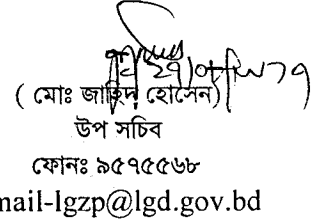 ( মোঃ জাহিদ হোসেন)
উপ সচিব
ফোনঃ ৯৫৭৫৫৬৮
mail-lgzp@lgd.gov.bd